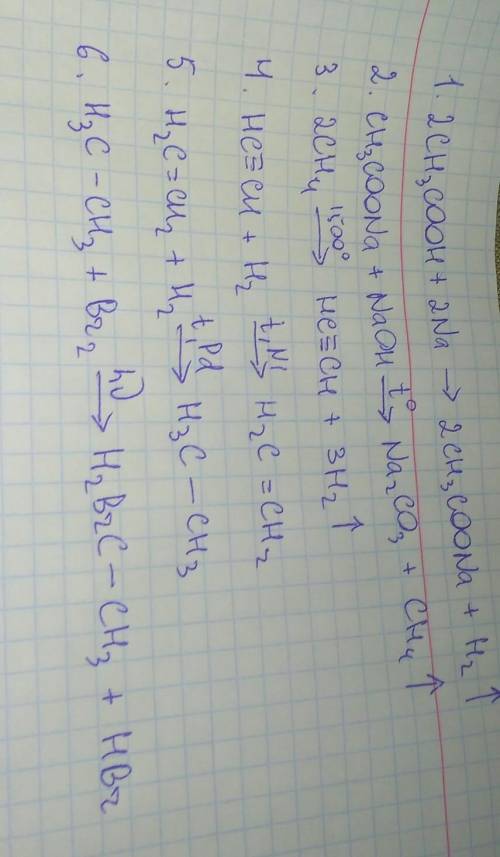 1. 2CH₃COOH + 2Na → 2CH₃COONa + H₂↑
2. CH₃COONa + NaOH t°→ Na₂CO₃ + CH₄↑
3. 2CH₄ 1500°→ HC≡CH + 3H₂↑
4. HC≡CH + H₂ t,Ni→ H₂C=CH₂
5. H₂C=CH₂ + H₂ t,Pd→ H₃C–CH₃
6. H₃C–CH₃ + Br₂ hν→ H₂BrC–CH₃ + HBr